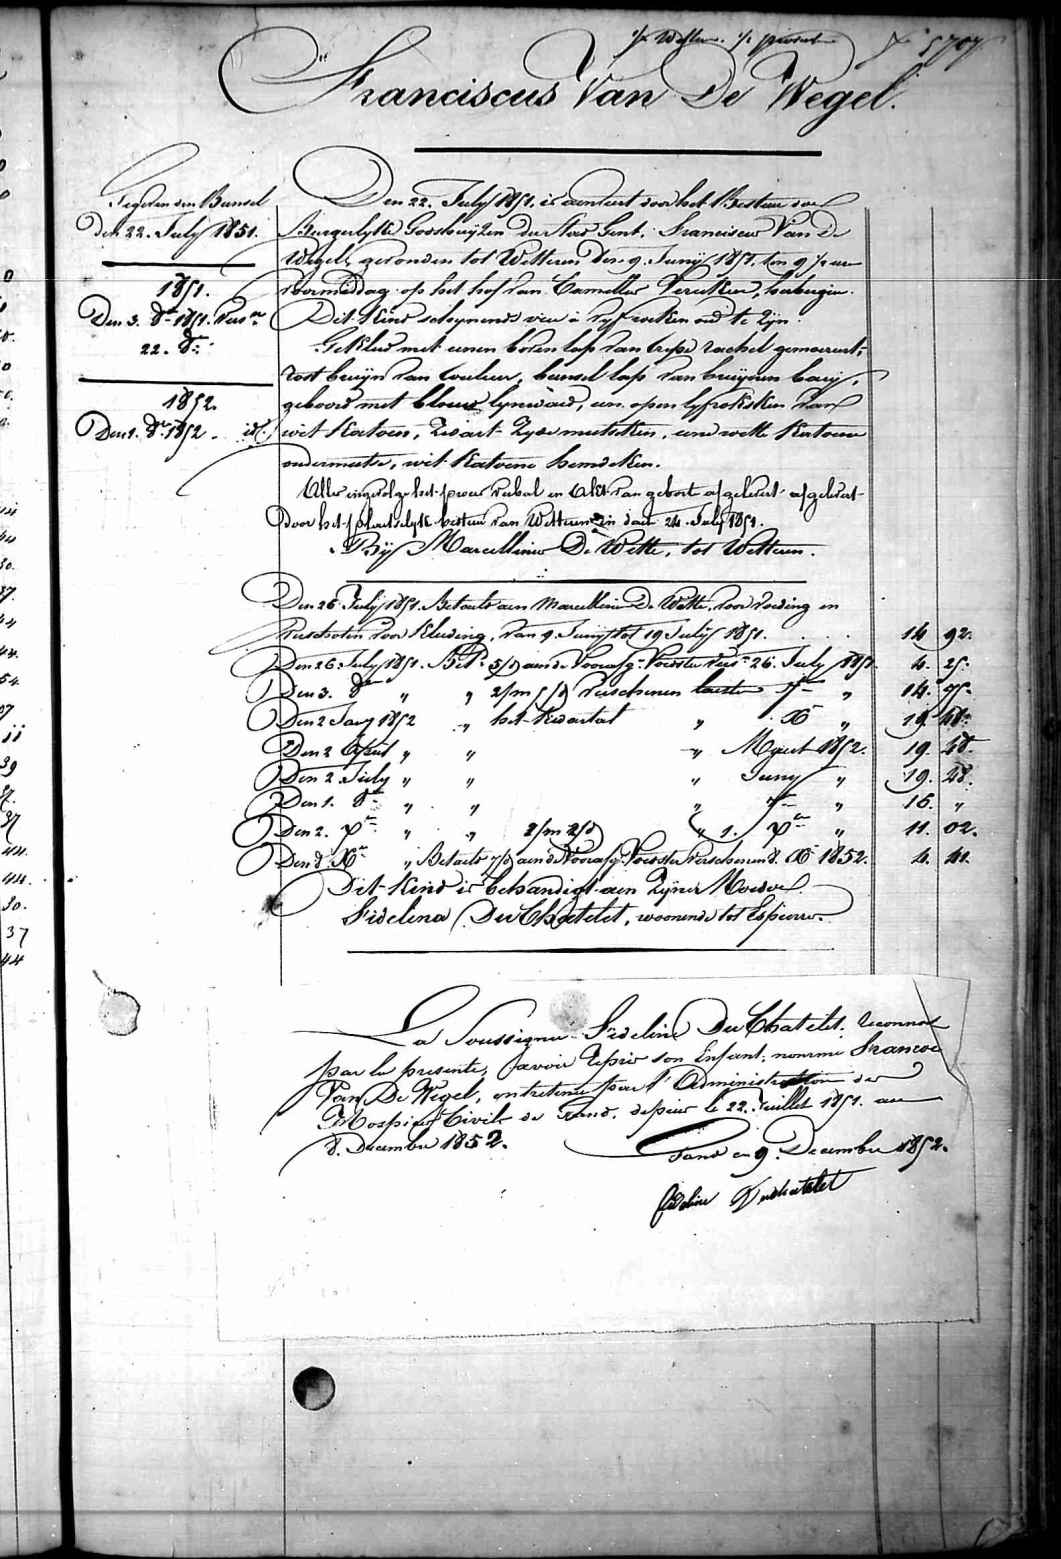 5707
Franciscus Van De Wegel.
Gegeven een Bunsel
den 22. July 1851.
1851.
Den 3. 8re 1851.
22. dº
1852.
Den 1. 8re 1852. id.
Den 22. July 1851. is aenveert door het Bestuer der
Burgerlyke Godshuyzen der Stad Gent. Franciscus Van De
Wegel, gevonden tot Wetteren den 9. Junij 1851. ten 9 ½ uren
voormiddag op het hof van Camellus herbergier.
Dit Kind schynende vier à vyf weken oud te zyn.
Gekleed met eenen boven lap van
rost bruyn van couleur, bunsel lap van bruynen baey,
geboord met blouw lynwaed, een open lyfrokske van
wit Katoen, zwart zyde mutseken, eene witte Katoene
ondermutse, wit Katoene hemdeken.
Alles ingevolge het proces verbael en Akt van geboorte afgelevert
door het plaetselyk bestuer van Wetteren in date 24. July 1851.
By Marcellinus De Witte, tot Wetteren.
Den 26 July 1851. Betaelt aen Marcellinus De Witte, voor voeding en
verschoten voor Kleeding, van 9. Junij tot 19 July 1851. 14 92.
Den 26. July 1851. Bet. aen de Voorzg. Voedster 26. July 1851. 4. 25.
Den 3. 8re " " 2/m verschenen laesten 7re " 14. 75.
Den 2 Jany 1852 " het Kwartal " Xre " 19. 48.
Den 2 April " " " Maert 1852. 19. 48.
Den 2. July " " " Juny " 19. 28.
Den 1. 8re " " " 7re " 15. "
Den 2. Xre " " 2/m " 1. Xre " 11. 02.
Den 8. Xre " Betaelt aen de Voorzg. Voedster verschenen 8. Xre 1852. 4. 41.
Dit Kind is behandigt aen zyne Moeder
Fidelina Du Chatelet, woonende tot Espierre.
La Soussignée Fideline Du Chatelet, reconnoit
par la presente, avoir repris son Enfant, nommé Francois
Van De Wegel, entretenu par l'Administration des
Hospices Civils de Gand, depuis le 22. Juillet 1851. au
8. Decembre 1852.
Gand ce 9. Decembre 1852.
fideline Duchatelet